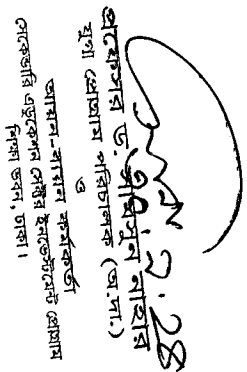 প্রফেসর ড. নাহার
যুগ্ম প্রোগ্রাম পরিচালক (অ.দা.)
ও
আয়ন-ব্যয়ন কর্মকর্তা
সেকেন্ডারি এডুকেশন সেক্টর ইনভেস্টমেন্ট প্রোগ্রাম
শিক্ষা ভবন, ঢাকা।